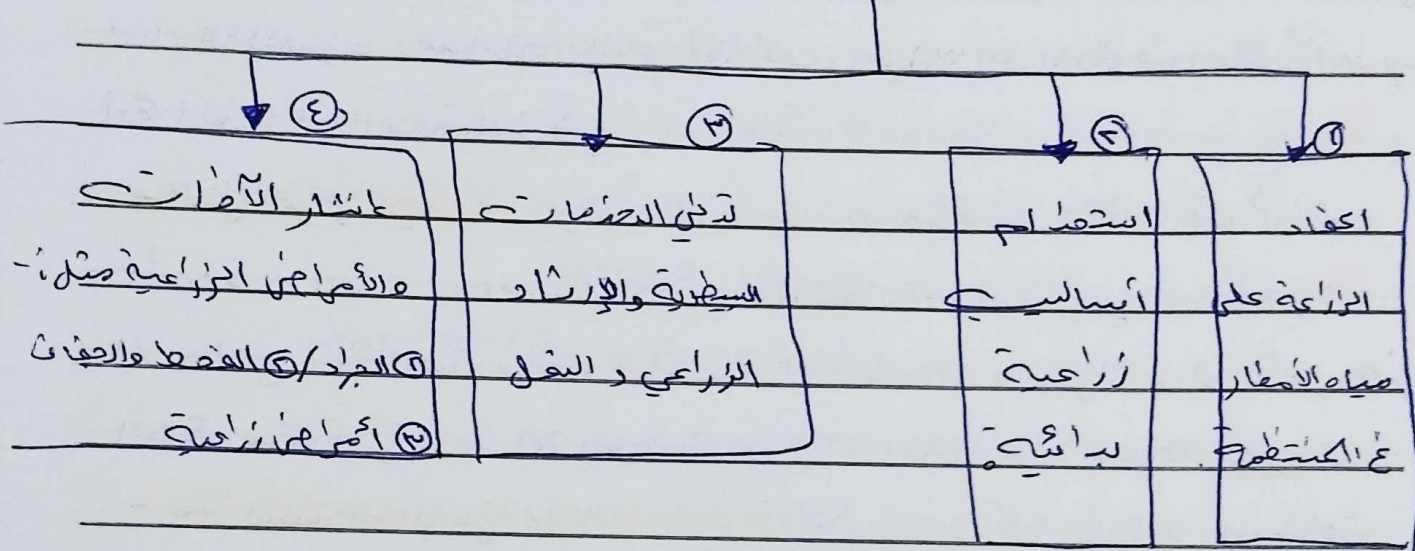 ①
اعتماد
الزراعة على
مياه الأمطار
غ المنتظمة
②
استخدام
أساليب
زراعية
بدائية
③
تدني الخدمات
البيطرية والإرشاد
الزراعي و النقل
④
انتشار الآفات
والأمراض الزراعية مثل :-
① الجراد / ② القحط والجفاف
③ أمراض زراعية